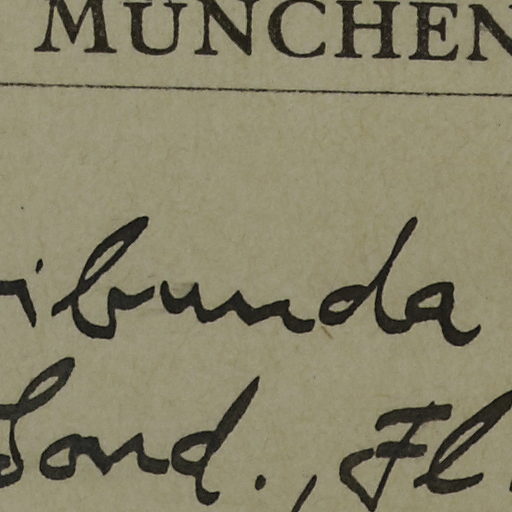 MÜNCHEN
ribunda
Lond., Fl.